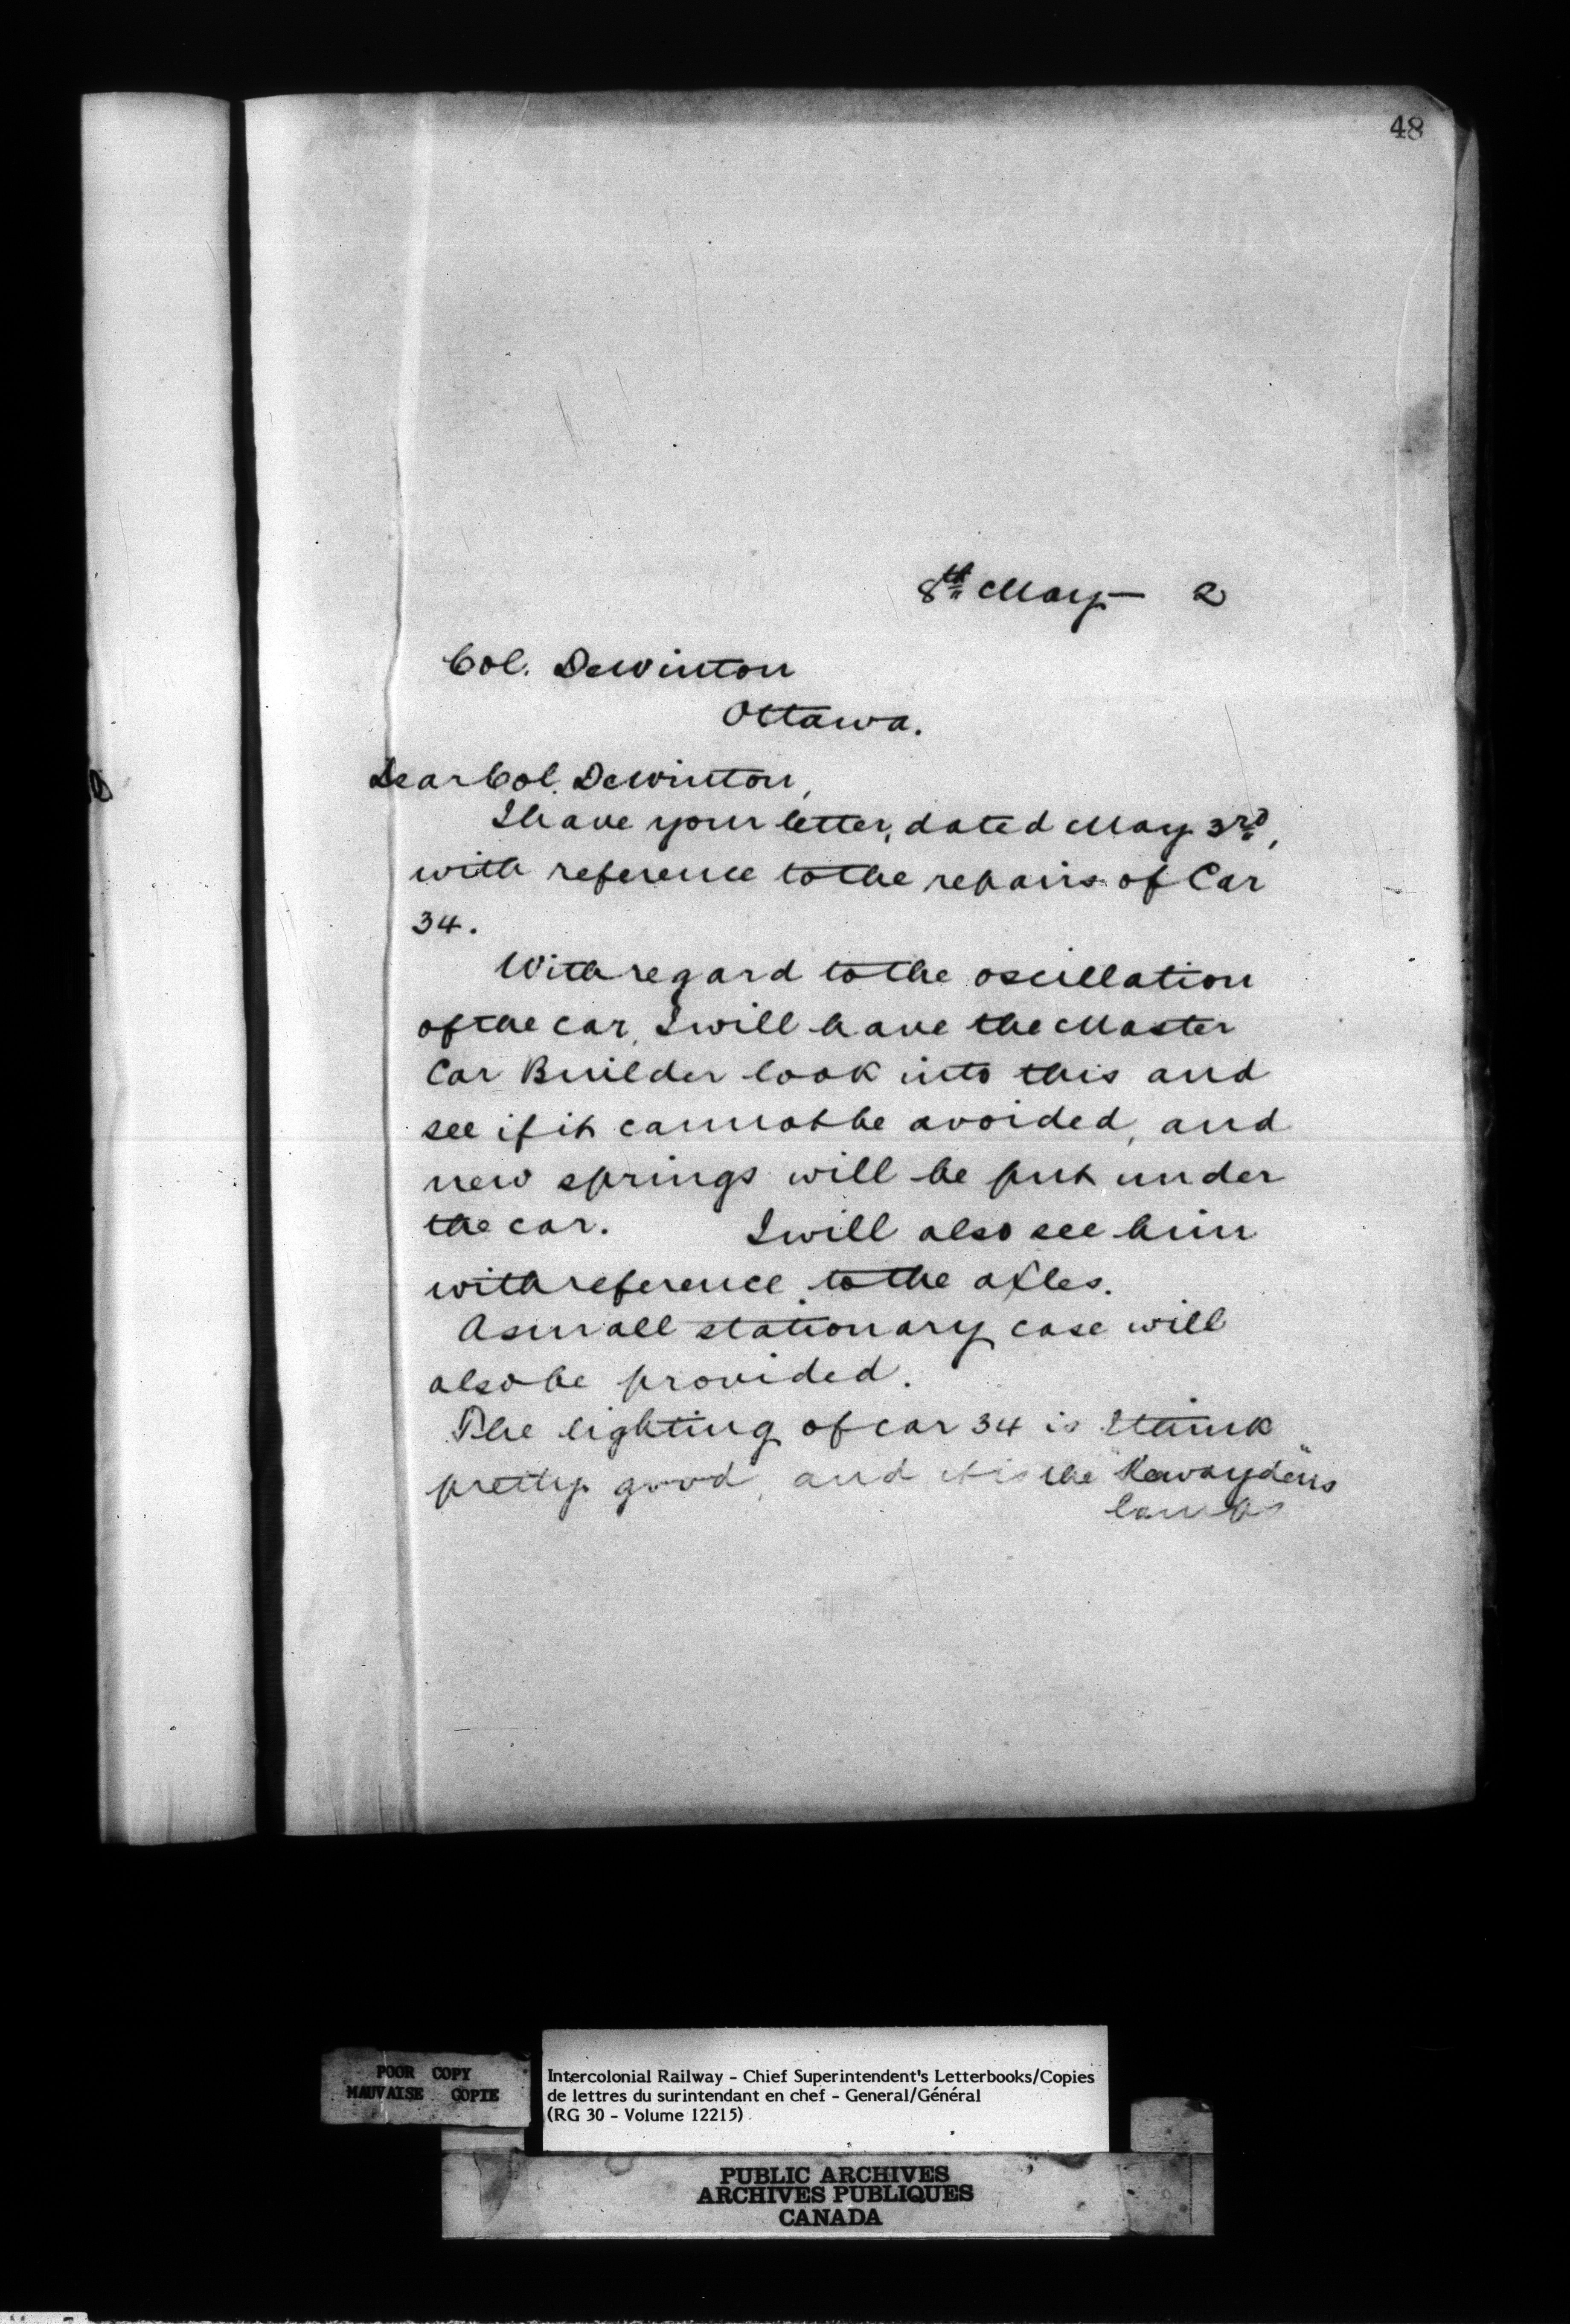 48
8th May - 2
Col. DeWinton
Ottawa.
Dear Col. DeWinton,
I have your letter, dated May 3rd,
with reference to the repairs of Car
34.
With regard to the oscillation
of the car, I will have the Master
Car Builder look into this and
see if it cannot be avoided, and
new springs will be put under
the car. I will also see him
with reference to the axles.
A small stationary case will
also be provided.
The lighting of car 34 is I think
pretty good, and it is the "Kewaydin's"
lamps
POOR COPY
MAUVAISE COPIE
Intercolonial Railway - Chief Superintendent's Letterbooks/Copies
de lettres du surintendant en chef - General/Général
(RG 30 - Volume 12215)
PUBLIC ARCHIVES
ARCHIVES PUBLIQUES
CANADA